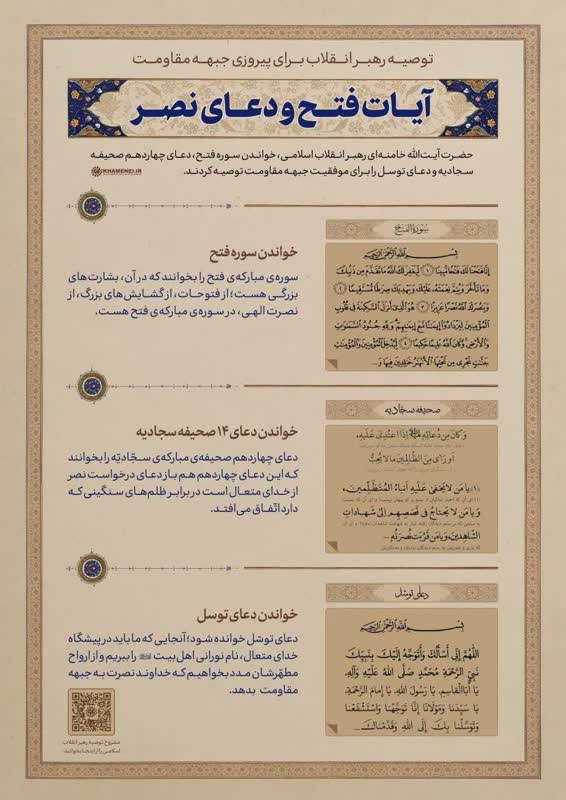 توصیه رهبر انقلاب برای پیروزی جبهه مقاومت
آیات فتح و دعای نصر
حضرت آیت‌الله خامنه‌ای رهبر انقلاب اسلامی، خواندن سوره فتح، دعای چهاردهم صحیفه
سجادیه و دعای توسل را برای موفقیت جبهه مقاومت توصیه کردند.
KHAMENEI.IR
سورة الفتح
بسم الله الرحمن الرحیم
إِنَّا فَتَحْنَا لَكَ فَتْحًا مُبِينًا ﴿۱﴾ لِيَغْفِرَ لَكَ اللَّهُ مَا تَقَدَّمَ مِنْ ذَنْبِكَ
وَمَا تَأَخَّرَ وَيُتِمَّ نِعْمَتَهُ عَلَيْكَ وَيَهْدِيَكَ صِرَاطًا مُسْتَقِيمًا ﴿۲﴾
وَيَنْصُرَكَ اللَّهُ نَصْرًا عَزِيزًا ﴿۳﴾ هُوَ الَّذِي أَنْزَلَ السَّكِينَةَ فِي قُلُوبِ
الْمُؤْمِنِينَ لِيَزْدَادُوا إِيمَانًا مَعَ إِيمَانِهِمْ وَلِلَّهِ جُنُودُ السَّمَاوَاتِ
وَالْأَرْضِ وَكَانَ اللَّهُ عَلِيمًا حَكِيمًا ﴿۴﴾ لِيُدْخِلَ الْمُؤْمِنِينَ وَالْمُؤْمِنَاتِ
جَنَّاتٍ تَجْرِي مِنْ تَحْتِهَا الْأَنْهَارُ خَالِدِينَ فِيهَا وَ...
خواندن سوره فتح
سوره‌ی مبارکه‌ی فتح را بخوانند که در آن، بشارت‌های
بزرگی هست؛ از فتوحات، از گشایش‌های بزرگ، از
نصرت الهی، در سوره‌ی مبارکه‌ی فتح هست.
صحیفه سجادیه
وَ كَانَ مِنْ دُعَائِهِ إِذَا اعْتُدِيَ عَلَيْهِ،
أَوْ رَأَى مِنَ الظَّالِمِينَ مَا لَا يُحِبُّ
(۱) يَا مَنْ لَا يَخْفَى عَلَيْهِ أَنْبَاءُ الْمُتَظَلِّمِينَ،
وَ يَا مَنْ لَا يَحْتَاجُ فِي قَصَصِهِمْ إِلَى شَهَادَاتِ
الشَّاهِدِينَ، وَ يَا مَنْ قَرُبَتْ نُصْرَتُهُ ...
خواندن دعای ۱۴ صحیفه سجادیه
دعای چهاردهم صحیفه‌ی مبارکه‌ی سجّادیّه را بخوانند
که این دعای چهاردهم هم باز دعای درخواست نصر
از خدای متعال است در برابر ظلم‌های سنگینی که
دارد اتّفاق می‌افتد.
دعای توسل
بسم الله الرحمن الرحیم
اللَّهُمَّ إِنِّي أَسْأَلُكَ وَأَتَوَجَّهُ إِلَيْكَ بِنَبِيِّكَ
نَبِيِّ الرَّحْمَةِ مُحَمَّدٍ صَلَّى اللَّهُ عَلَيْهِ وَآلِهِ،
يَا أَبَا الْقَاسِمِ، يَا رَسُولَ اللَّهِ، يَا إِمَامَ الرَّحْمَةِ،
يَا سَيِّدَنَا وَمَوْلَانَا إِنَّا تَوَجَّهْنَا وَاسْتَشْفَعْنَا
وَتَوَسَّلْنَا بِكَ إِلَى اللَّهِ وَقَدَّمْنَاكَ ...
خواندن دعای توسل
دعای توسّل خوانده شود؛ آنجایی که ما باید در پیشگاه
خدای متعال، نام نورانی اهل‌بیت را ببریم و از ارواح
مطهّرشان مدد بخواهیم که خداوند نصرت به جبهه
مقاومت بدهد.
مشروح توصیه رهبر انقلاب
اسلامی را از اینجا بخوانید